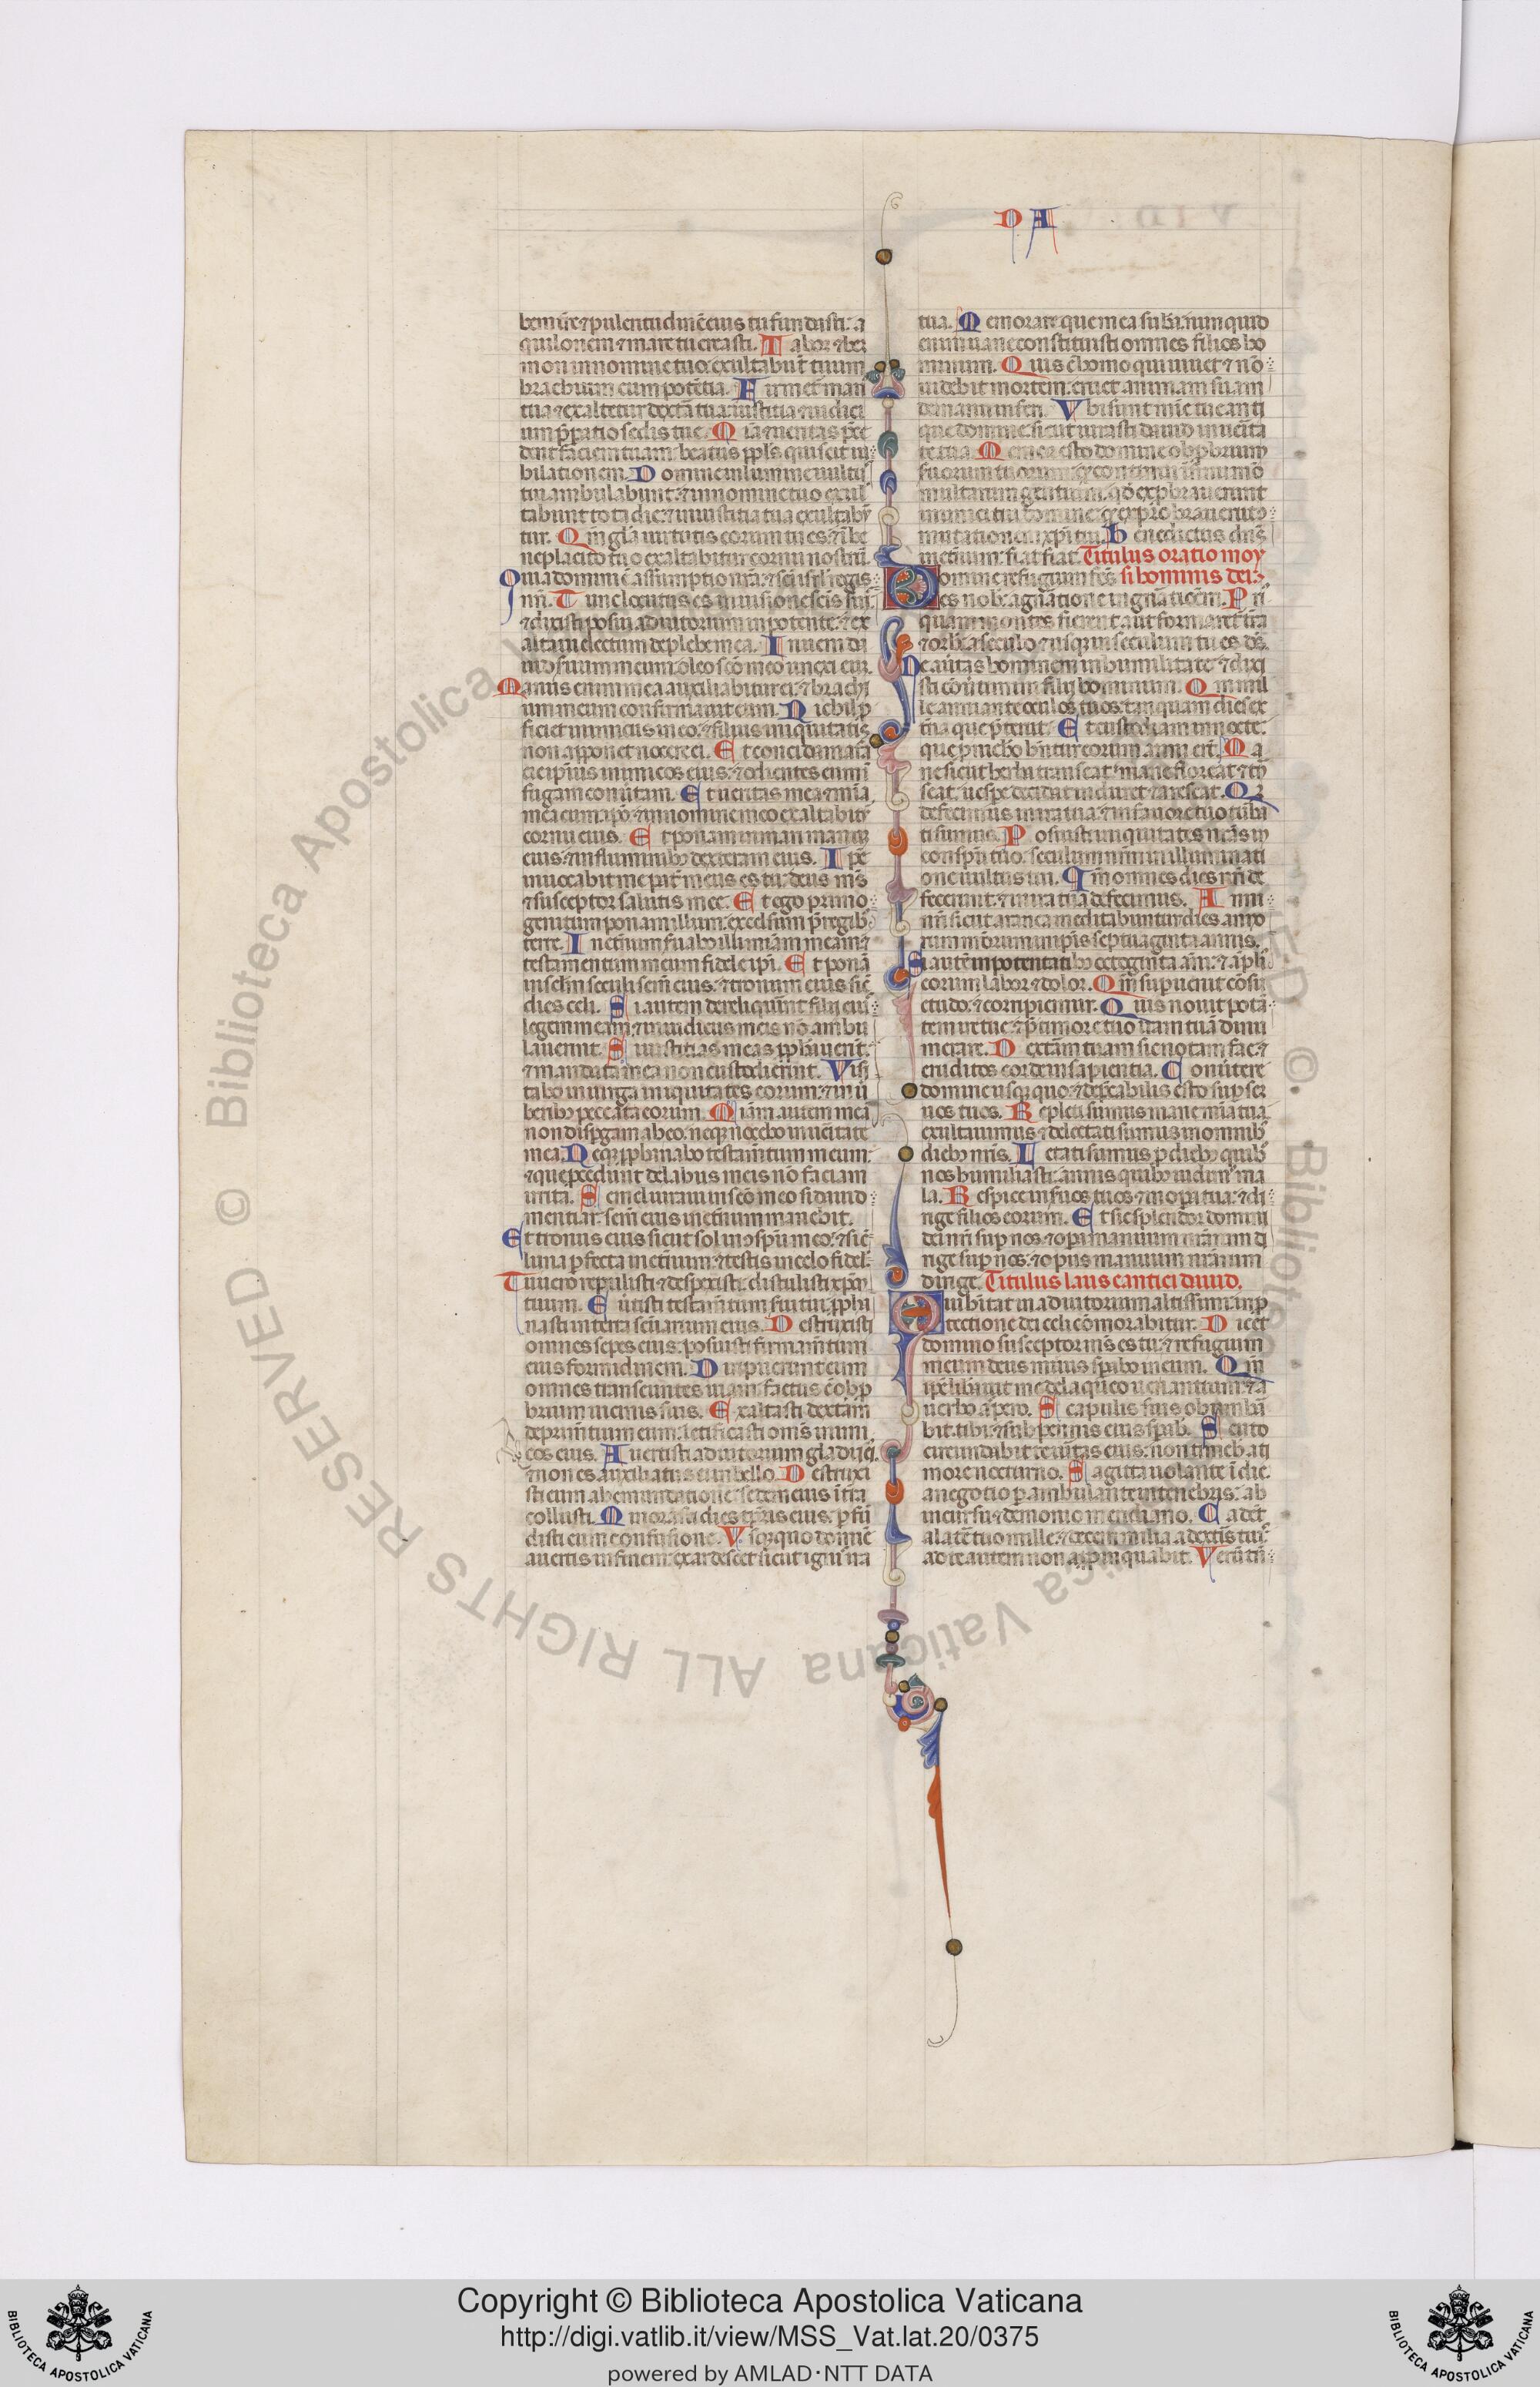 D A
bem t̄re ⁊ plenitudinē eius tu fundasti: a
quilonem ⁊ mare tu creasti. Tabor ⁊ her
mon in nomine tuo exultabūt tuum
brachium cum potētia. Firmet̄ man̄
tua ⁊ exaltetur dext̄a tua: iustitia ⁊ iudici
um p̄paratio sedis tue. Mīa ⁊ ueritas p̄ce
dent faciem tuam: beatus ppl̄s qui scit iu
bilationem. Domine in lumine uultꝰ
tui ambulabunt: ⁊ in nomine tuo exul
tabunt tota die: ⁊ in iustitia tua exaltabū
tur. Qm̄ gl̄a uirtutis eorum tu es: ⁊ ī be
neplacito tuo exaltabitur cornu nostrū.
Quia domini ē assumptio nr̄a: ⁊ sc̄i isrl̄ regis
nr̄i. Tunc locutus es in uisione sc̄is tuis
⁊ dixisti posui adiutorium in potente: ⁊ ex
altaui electum de plebe mea. Inueni da
uid seruum meum: oleo sc̄o meo unxi eum.
Manus enim mea auxiliabitur ei: ⁊ brachi
um meum confirmauit eum. Nichil p̄
ficiet inimicus in eo: ⁊ filius iniquitatis
non apponet nocere ei. Et concidam a fa
cie ipsius inimicos eius: ⁊ odientes eum ī
fugam conūtam. Et ueritas mea ⁊ mīa
mea cum ip̄o: ⁊ in nomine meo exaltabitur
cornu eius. Et ponam in mari manum
eius: ⁊ in fluminibꝫ dexteram eius. Ipē
inuocabit me pat̄ meus es tu: deus mꝰs
⁊ susceptor salutis mee. Et ego primo
genitum ponam illum: excelsum p̄ regibꝫ
terre. In et̄num seruabo illi miam̄ meam: ⁊
testamentum meum fidele ipi. Et ponā
in sc̄lm seculi sem̄ eius: ⁊ tronum eius sic̄
dies celi. Si autem dereliquerint filii eiꝰ
legem meam: ⁊ in iudiciis meis nō ambu
lauerint. Si iustitias meas pphauerint:
⁊ mandata mea non custodierint. Visi
tabo in uirga iniquitates eorum: ⁊ in ū
beribꝫ peccata eorum. Miam autem meā
non dispgam ab eo: neqꝫ nocebo in ueritate
mea. Neqꝫ pphanabo testamtum meum:
⁊ que procedunt de labiis meis nō faciam
irrita. Semel iuraui in sc̄o meo si dauid
mentiar: sem̄ eius in et̄num manebit.
Et tronus eius sicut sol in ↄspū meo: ⁊ sic̄
luna p̄fecta in et̄num: ⁊ testis in celo fidel̄.
Tu uero repulisti ⁊ despexisti: distulisti xp̄m
tuum. Euertisti testamtum serui tui: ppha
nasti in terra sc̄uarium eius. Destruxisti
omnes sepes eius: posuisti firmamtum
eius formidinem. Diripuerunt eum
omnes transeuntes uiam: factus ē obp̄
brium uicinis suis. Exaltasti dext̄am
deprimtium eum: letificasti om̄s inimi
cos eius. Auertisti adiutorium gladii eiꝰ:
⁊ non es auxiliatus ei in bello. Destruxi
sti eum ab emundatione: sedem eius ī t̄ra
collisti. Minorasti dies tp̄ris eius: p̄fu
disti eum confusione. Vsqꝫquo domine
auertis in finem: exardescet sicut ignis ira
tua. Memorare que mea sub̄a: nunquid
enim uane constituisti omnes filios ho
minum. Quis ē homo qui uiuet ⁊ nō
uidebit mortem: eruet animam suam
de manu inferi. Vbi sunt mīe tue anti
que domine: sicut iurasti dauid in ueritā
te tua. Memor esto domine obp̄brium
seruorum tuorum: qꝫ continui in sinu mo
multarum gentium. qd̄ exp̄brauerunt
inimici tui domine: qꝫ exp̄brauerunt ↄ
mutationem xpi tui. Benedictus dn̄s
in et̄num: fiat fiat. Titulus oratio moy
Domine refugium fc̄s si hominis dei.
es nob̄: a gn̄atione in gn̄ationem. Pri
quam montes fierent aut formaret̄ t̄ra
⁊ orbꝫ: a seculo ⁊ usqꝫ in seculum tu es dꝰs.
Ne auertas hominem in humilitate: ⁊ dixi
sti conūtimini filii hominum. Qm̄ mil
le anni ante oculos tuos: tanquam dies ex
t̄na que p̄teriit. Et custodiam in nocte:
que p̄ nichilo hn̄tur eorum anni ert̄. Ma
ne sicut herba transeat mane floreat ⁊ tn̄
seat: uesp̄e decidat induret ⁊ arescat. Qꝫ
defecimus in ira tua: ⁊ in furore tuo tūba
ti sumus. Posuisti iniquitates nr̄as in
conspū tuo: seculum nr̄m in illuminati
one uultus tui. Qm̄ omnes dies nr̄i de
fecerunt: ⁊ in ira tua defecimus. Anni
nr̄i sicut aranea meditabuntur: dies anno
rum nr̄orum in ip̄is septuaginta annis.
Si autē in potentatibꝫ octoginta ani: ⁊ ampliꝰ
eorum labor ⁊ dolor. Qm̄ supuenit māsu
etudo: ⁊ corripiemur. Quis nouit potā
tem ire tue: ⁊ p̄ timore tuo iram tuā dinu
merare. Dext̄am tuam sic notam fac: ⁊
eruditos corde in sapientia. Conūtere
domine usqꝫquo: ⁊ dep̄cabilis esto sup ser
uos tuos. Repleti sumus mane mīa tua:
exultauimus ⁊ delectati sumus in omnibꝫ
diebꝫ nr̄is. Letati sumus p̄ diebꝫ quibꝫ
nos humiliasti: annis quibꝫ uidimꝰ ma
la. Respice in seruos tuos ⁊ in opa tua: ⁊ di
rige filios eorum. Et sit splendor domini
dei nr̄i sup nos: ⁊ opa manuum nr̄arum di
rige sup nos: ⁊ opus manuum nr̄arum
dirige. Titulus laus cantici dauid.
Qui habitat in adiutorium altissimi: in p̄
tectione dei celi cōmorabitur. Dicet
domino susceptor mꝰs es tu: ⁊ refugium
meum deus meus sp̄abo in eum. Qm̄
ip̄e liberauit me de laqueo uenantium: ⁊ a
uerbo aspero. Scapulis suis obumbra
bit tibi: ⁊ sub pennis eius sp̄ab̄. Scuto
circundabit te ueritas eius: non timeb̄ a ti
more nocturno. Sagitta uolante ī die
a negotio p̄ambulante in tenebris: ab
incursu ⁊ demonio meridiano. Cadēt
a latere tuo mille: ⁊ decem milia a dext̄is tuis:
ad te autem non appinquabit. Verūtn̄
Copyright © Biblioteca Apostolica Vaticana
http://digi.vatlib.it/view/MSS_Vat.lat.20/0375
powered by AMLAD·NTT DATA
BIBLIOTECA APOSTOLICA VATICANA
BIBLIOTECA APOSTOLICA VATICANA
© Biblioteca Apostolica Vaticana ALL RIGHTS RESERVED